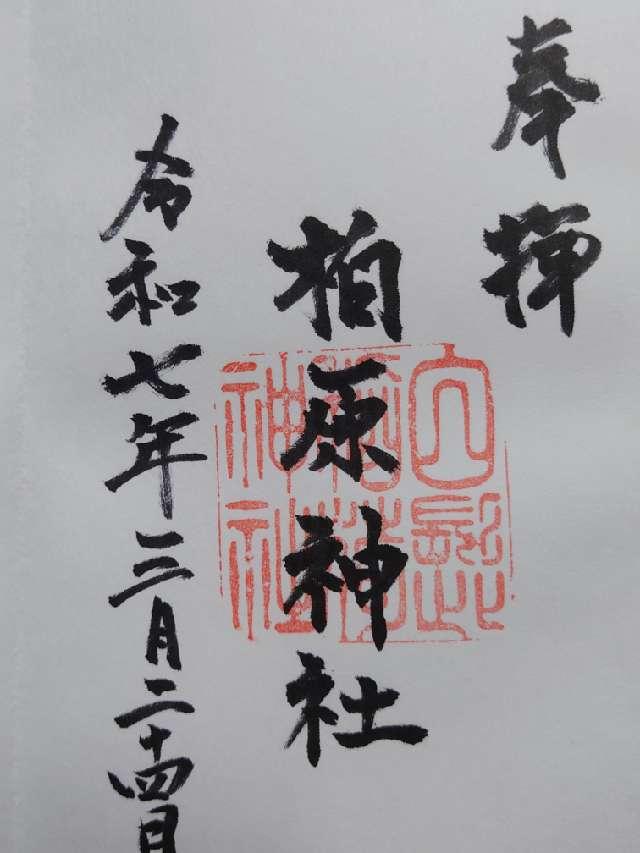 奉拝
柏原神社
神社
令和七年三月二十四日